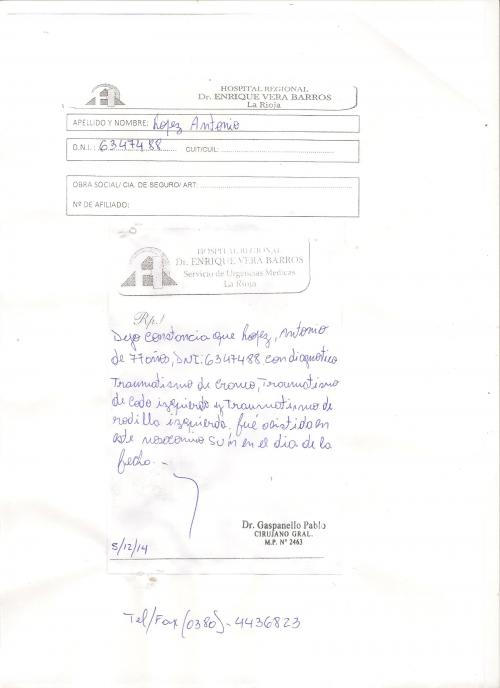 HOSPITAL REGIONAL
Dr. ENRIQUE VERA BARROS
La Rioja
APELLIDO Y NOMBRE: Lopez Antonio
D.N.I.: 6347488 CUIT/CUIL:
OBRA SOCIAL/ CIA. DE SEGURO/ ART:
Nº DE AFILIADO:
HOSPITAL REGIONAL
Dr. ENRIQUE VERA BARROS
Servicio de Urgencias Medicas
La Rioja
Rp./
Dejo constancia que Lopez, Antonio
de 77 años, DNI: 6347488 con diagnotico
Traumatismo de craneo, Traumatismo
de codo izquierdo y Traumatismo de
rodilla izquierda, fué asistido en
este nosocomio SUM en el dia de la
fecha. -
Dr. Gaspanello Pablo
CIRUJANO GRAL.
M.P. Nº 2463
5/12/14
Tel/Fax (0380)-4436823